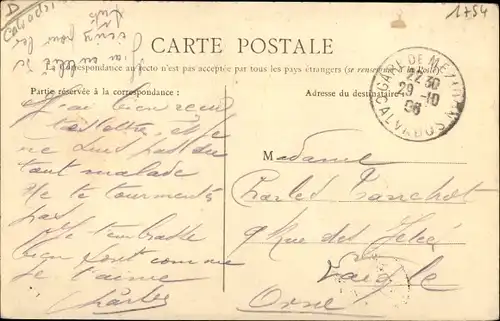 D
Calvados
1754
CARTE POSTALE
La Correspondance au recto n'est pas acceptée par tous les pays étrangers (se renseigner à la Poste)
Partie réservée à la correspondance :
Adresse du destinataire
GARE DE MEZIDON
22 30
29 -10
CALVADOS
J'ai bien reçu
ta lettre, et je
ne suis pas du
tout malade
Ne te tourmente
pas
Je t'embrasse
bien fort comme
je t'aime
Charles
Madame
Charles
9 Rue des
Laigle
Orne